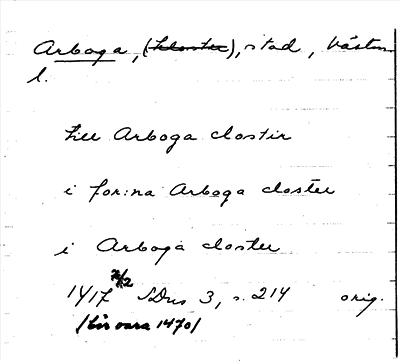 Arboga, (kloster), stad, Västm
l.
till Arboga clostir
i for:na Arboga closter
i Arboga closter
1417 7/2 SDns 3, s. 214 orig.
/bör vara 1470/